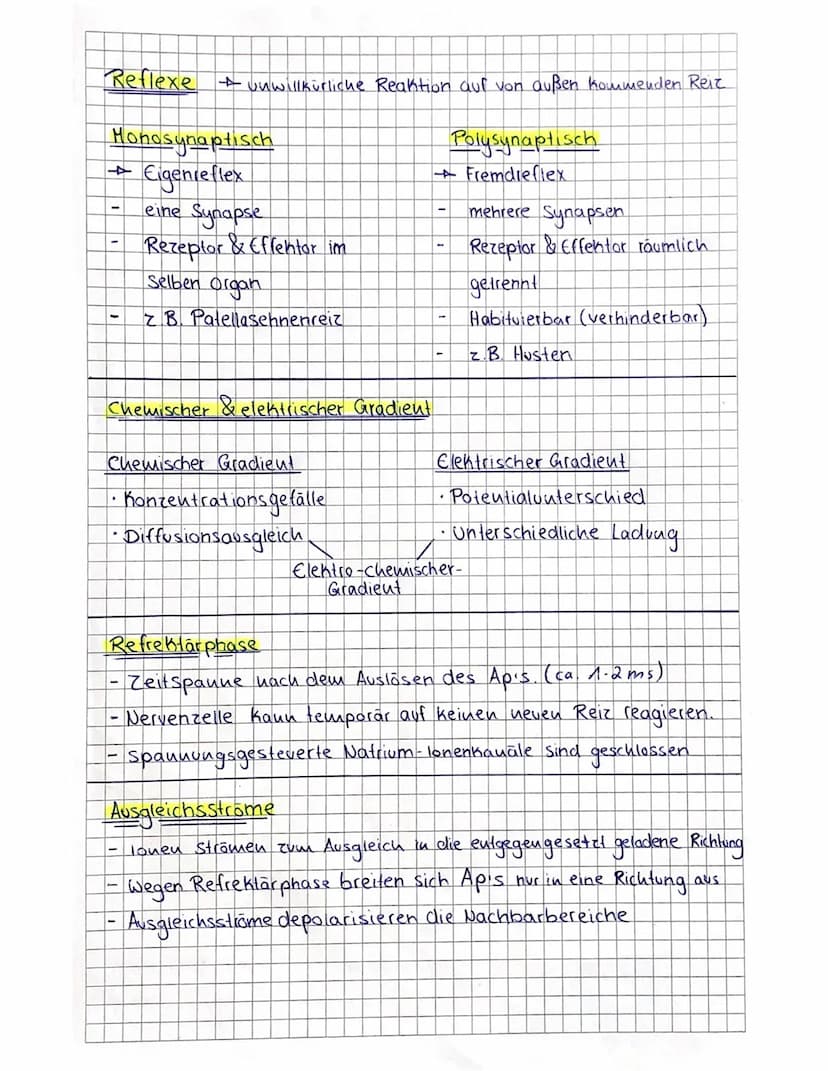 Reflexe → unwillkürliche Reaktion auf von außen kommenden Reiz
Monosynaptisch
→ Eigenreflex
- eine Synapse
- Rezeptor & Effektor im
selben Organ
- z.B. Patellasehnenreiz
Polysynaptisch
→ Fremdreflex
- mehrere Synapsen
- Rezeptor & Effektor räumlich
getrennt
- Habituierbar (verhinderbar)
- z.B. Husten
Chemischer & elektrischer Gradient
Chemischer Gradient
· Konzentrationsgefälle
· Diffusionsausgleich
Elektrischer Gradient
· Potentialunterschied
· Unterschiedliche Ladung
Elektro-chemischer-
Gradient
Refrektärphase
- Zeitspanne nach dem Auslösen des Ap's. (ca. 1-2 ms)
- Nervenzelle kann temporär auf keinen neuen Reiz reagieren.
- Spannungsgesteuerte Natrium-Ionenkanäle sind geschlossen
Ausgleichsströme
- Ionen strömen zum Ausgleich in die entgegengesetzt geladene Richtung
- Wegen Refrektärphase breiten sich Ap's nur in eine Richtung aus
- Ausgleichsströme depolarisieren die Nachbarbereiche